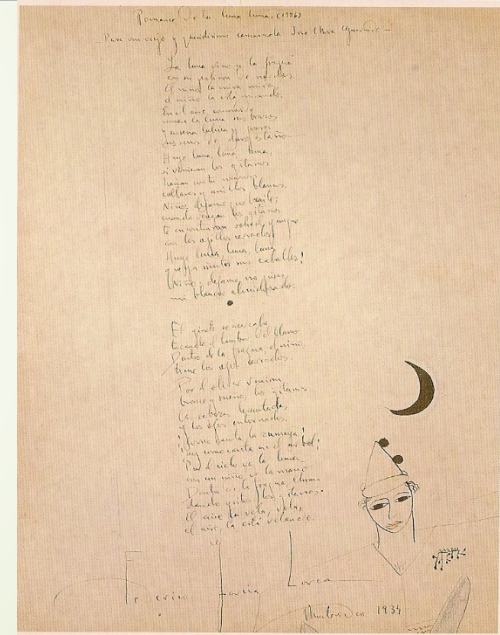 Romance de la luna luna. (1926)
Para mi viejo y queridísimo camarada José
La luna vino a la fragua
con su polisón de nardos,
el niño la mira mira
el niño la está mirando.
En el aire conmovido
mueve la luna sus brazos
y enseña lúbrica y pura
sus senos de duro estaño.
Huye luna, luna, luna,
si vinieran los gitanos
harían con tu corazón
collares y anillos blancos.
Niño déjame que baile,
cuando vengan los gitanos
te encontrarán sobre el yunque
con los ojillos cerrados.
Huye luna, luna, luna
que ya siento sus caballos!
Niño déjame, no pises
mi blancor almidonado.
El jinete se acercaba
tocando el tambor del llano
Dentro de la fragua el niño,
tiene los ojos cerrados.
Por el olivar venían
bronce y sueño, los gitanos
las cabezas levantadas
y los ojos entornados.
¡Cómo canta la zumaya!
¡ay como canta en el árbol!
Por el cielo va la luna
con un niño de la mano
Dentro de la fragua lloran
dando gritos los gitanos.
el aire la vela, vela,
el aire la está velando.
Federico García Lorca
Montevideo 1934